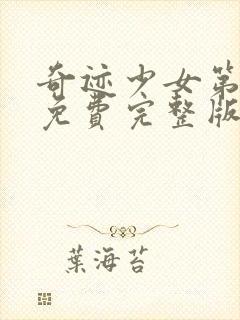 奇迹少女第
免費完整版
葉海苔